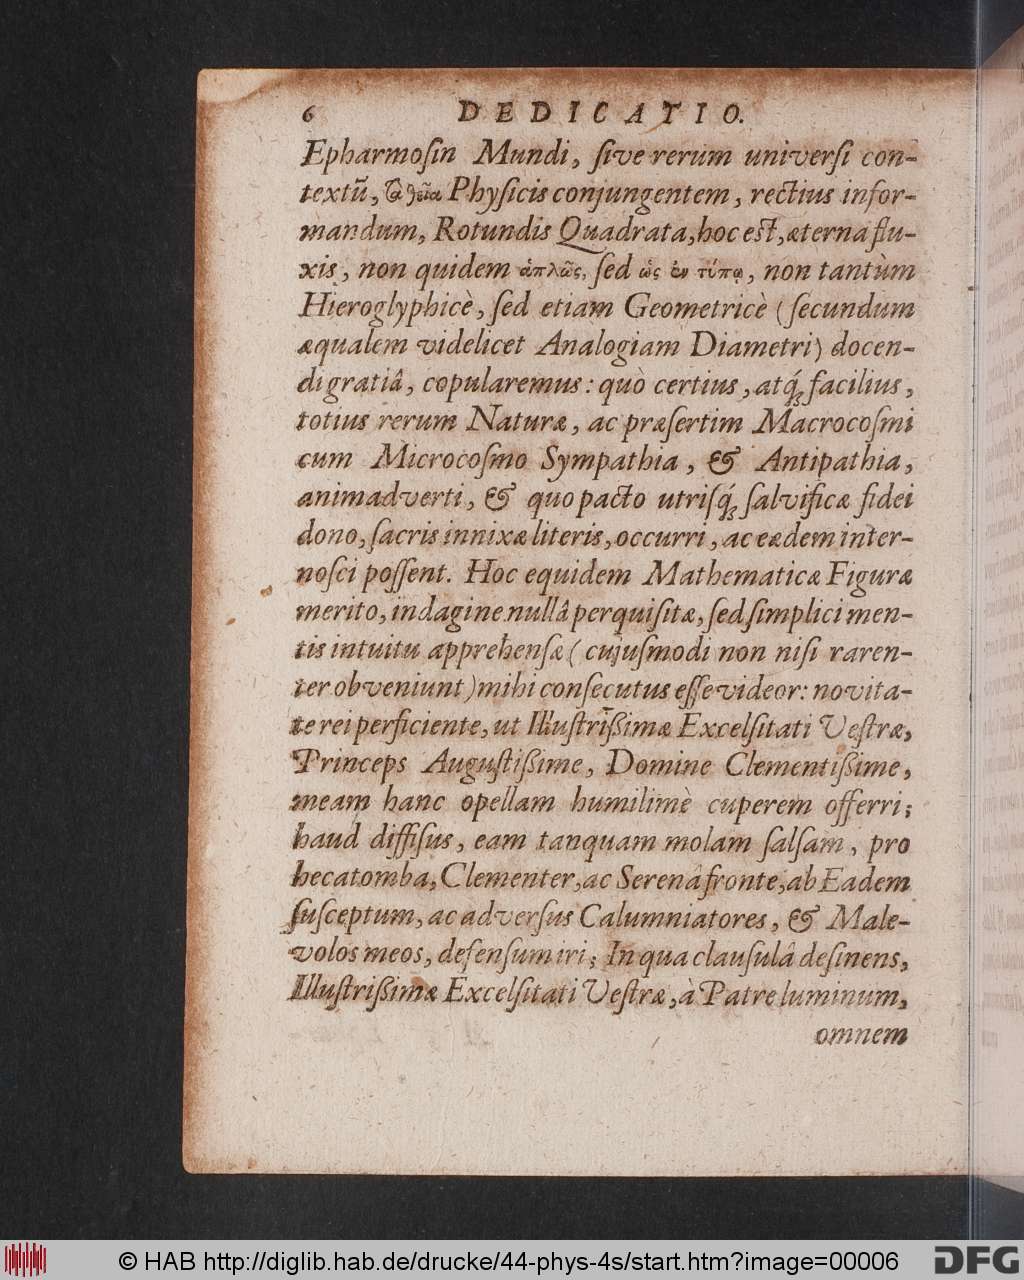 6 DEDICATIO.
Epharmoſin Mundi, ſive rerum univerſi con-
textū, τὰ θεῖα Phyſicis conjungentem, rectius infor-
mandum, Rotundis Quadrata, hoc eſt, æterna flu-
xis, non quidem ἁπλῶς, ſed ὡς ἐν τύπῳ, non tantùm
Hieroglyphicè, ſed etiam Geometricè (ſecundum
æqualem videlicet Analogiam Diametri) docen-
di gratiâ, copularemus: quò certius, atq́; facilius,
totius rerum Naturæ, ac præſertim Macrocoſmi
cum Microcoſmo Sympathia, & Antipathia,
animadverti, & quo pacto utriſq́; ſalvificæ fidei
dono, ſacris innixæ literis, occurri, ac eædem inter-
noſci poſſent. Hoc equidem Mathematicæ Figuræ
merito, indagine nullâ perquiſitæ, ſed ſimplici men-
tis intuitu apprehenſæ (cujuſmodi non niſi raren-
ter obveniunt) mihi conſecutus eſſe videor: novita-
te rei perficiente, ut Illuſtriſſimæ Excelſitati Veſtræ,
Princeps Auguſtiſſime, Domine Clementiſſime,
meam hanc opellam humilimè cuperem offerri;
haud diffiſus, eam tanquam molam ſalſam, pro
hecatomba, Clementer, ac Serenâ fronte, ab Eadem
ſuſceptum, ac adverſus Calumniatores, & Male-
volos meos, defenſum iri; In qua clauſulâ deſinens,
Illuſtriſſimæ Excelſitati Veſtræ, à Patre luminum,
omnem
© HAB http://diglib.hab.de/drucke/44-phys-4s/start.htm?image=00006
DFG